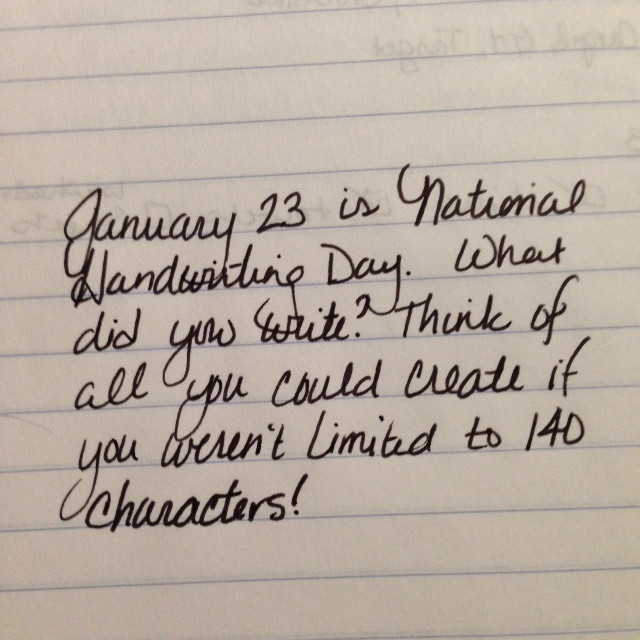 January 23 is National
Handwriting Day. What
did you write? Think of
all you could create if
you weren't limited to 140
characters!